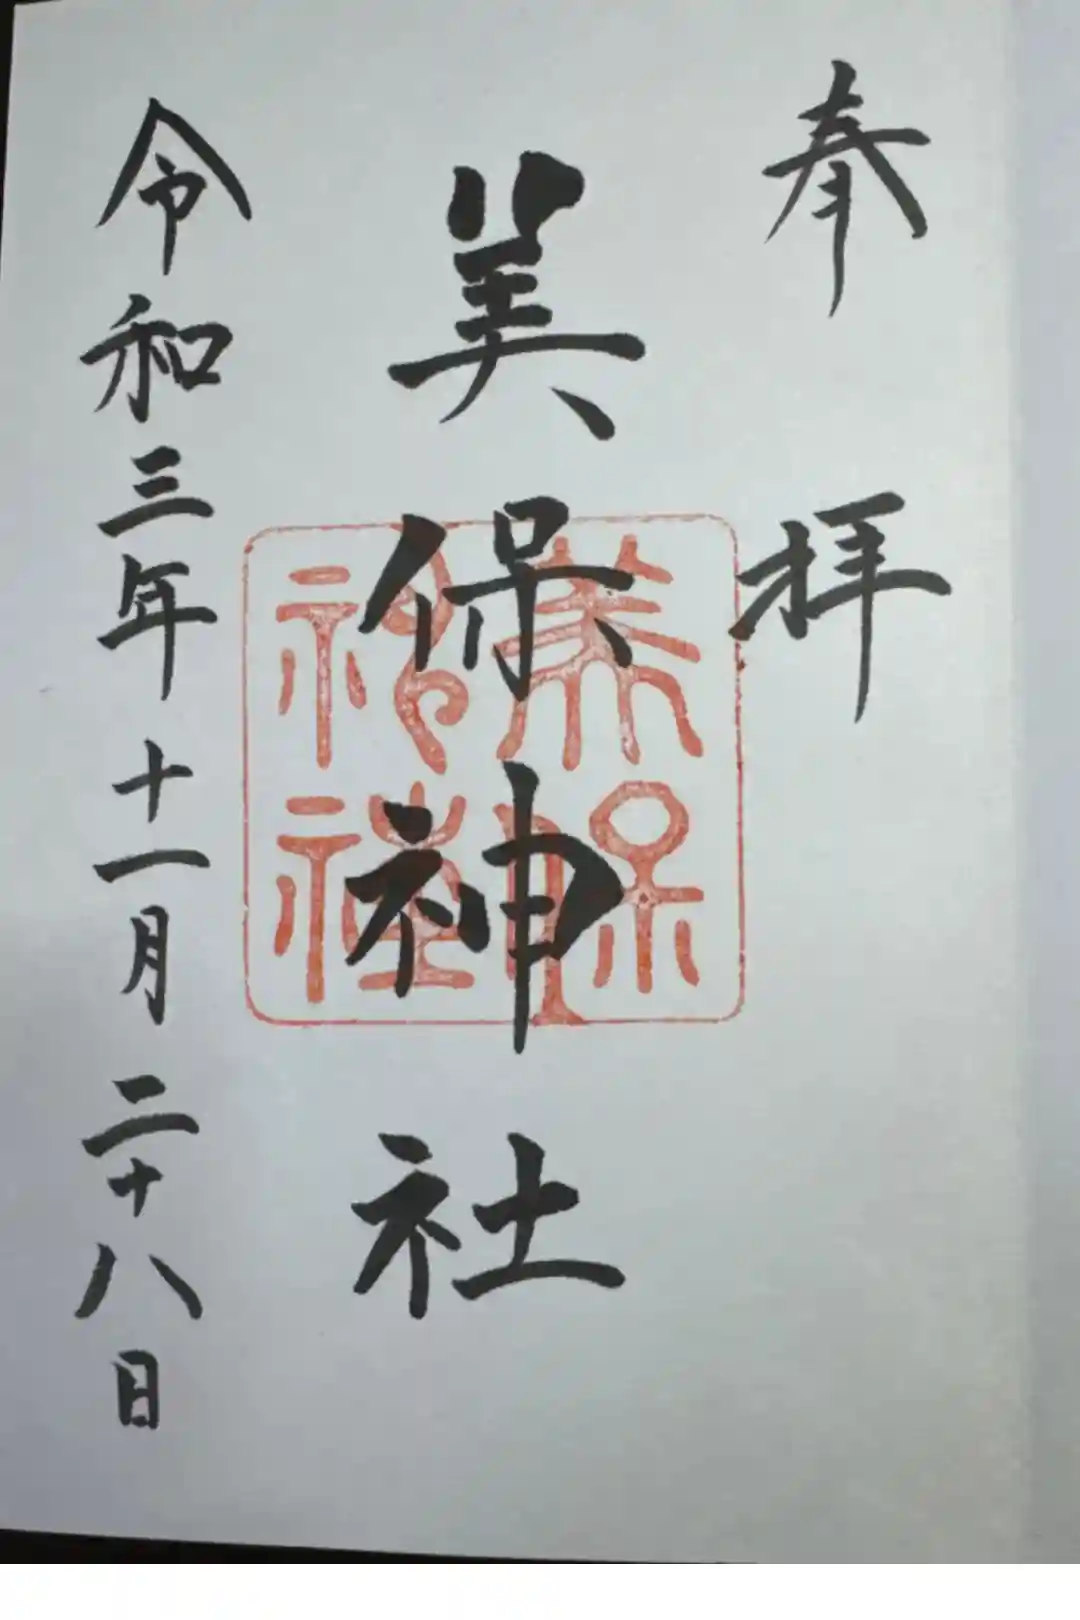 奉拝
美保神社
美保神社
令和三年十一月二十八日